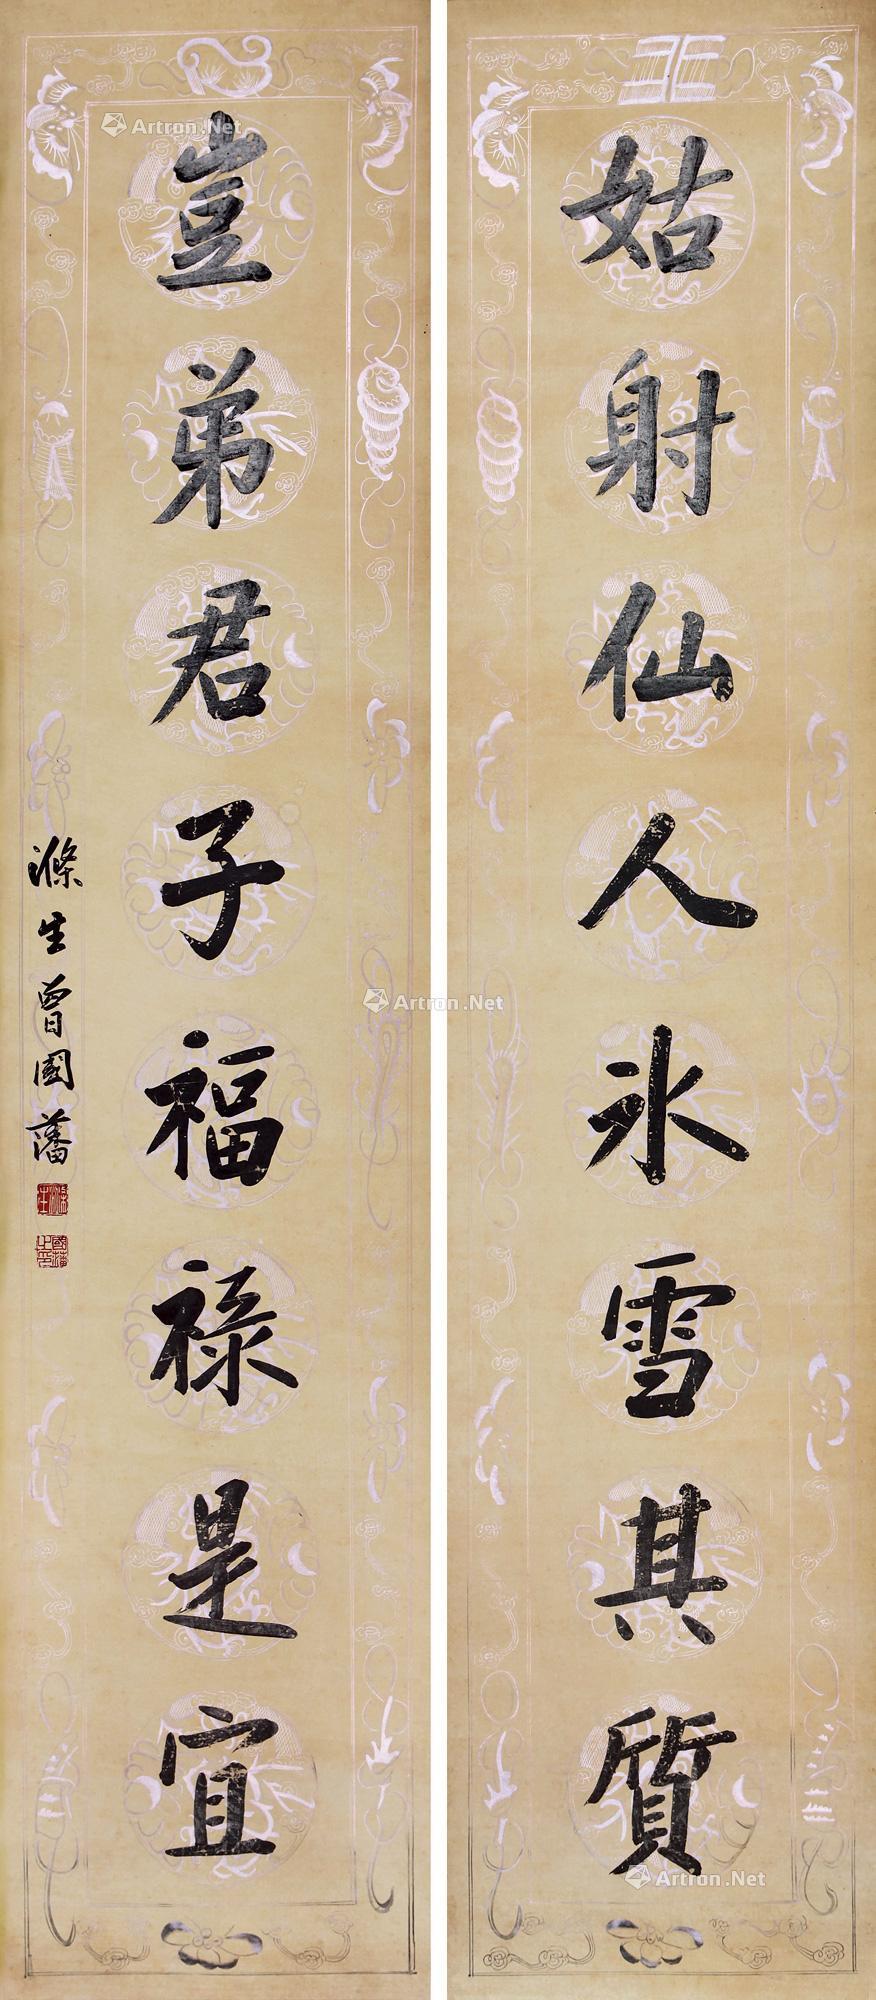 姑射仙人冰雪其質
豈弟君子福祿是宜
滌生曾國藩
滌生
國藩之印
Artron.Net
Artron.Net
Artron.Net